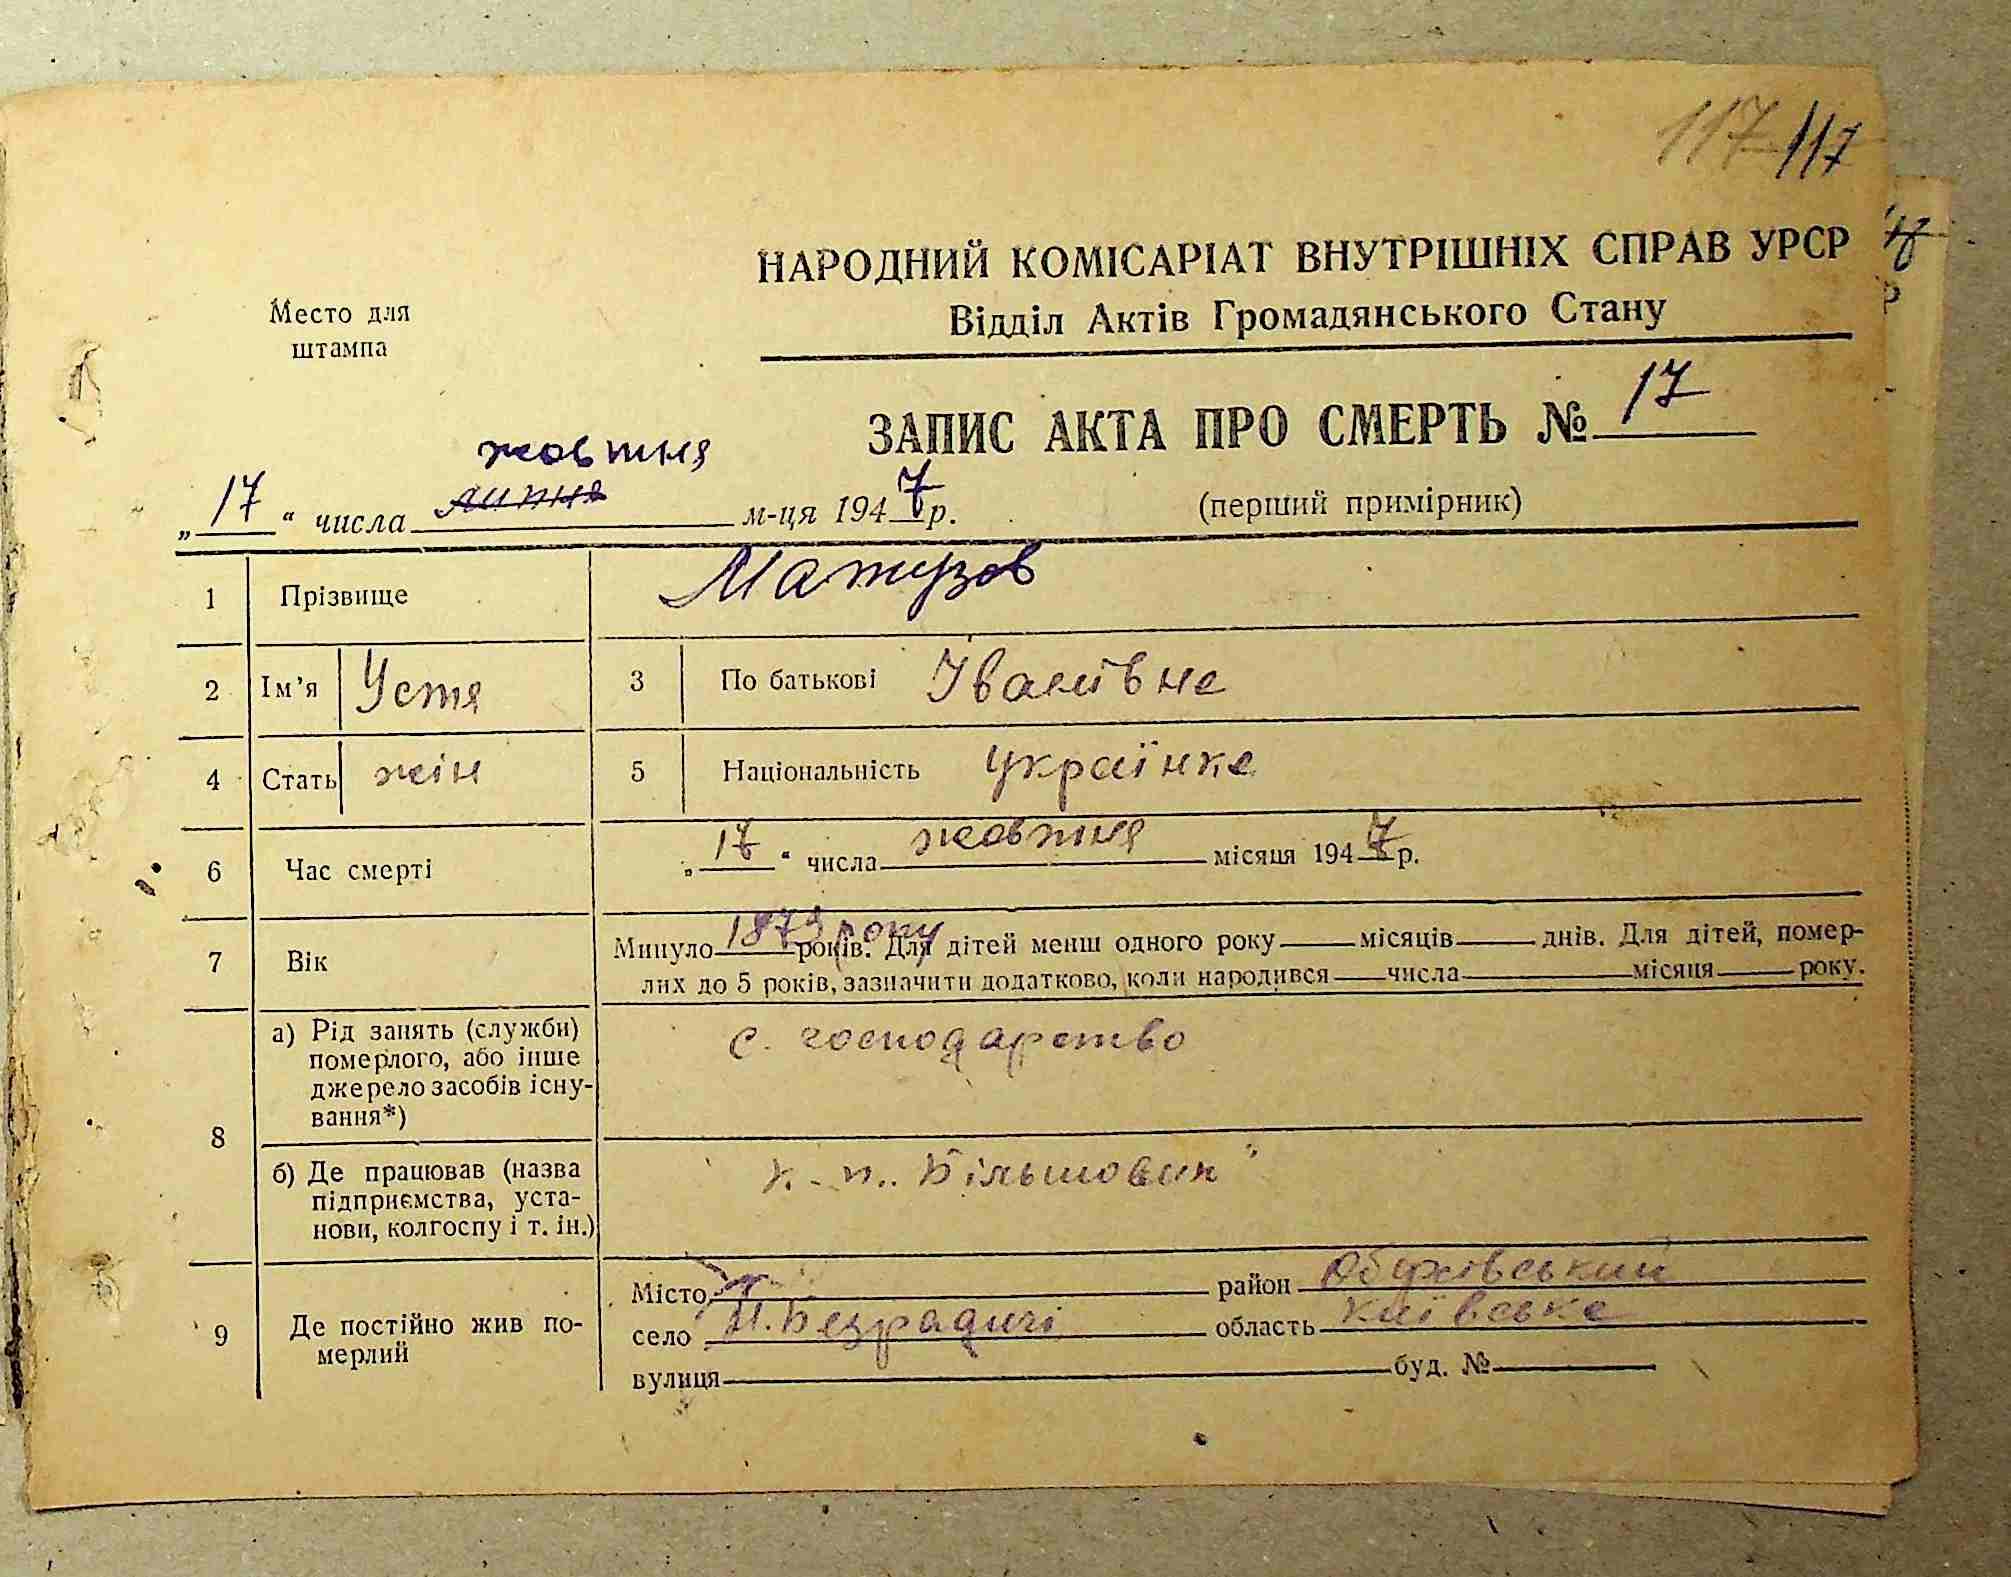 117 117
НАРОДНИЙ КОМІСАРІАТ ВНУТРІШНІХ СПРАВ УРСР
Відділ Актів Громадянського Стану
Место для
штампа
ЗАПИС АКТА ПРО СМЕРТЬ № 17
(перший примірник)
жовтня
„17“ числа липня м-ця 1947 р.
1 Прізвище Матузов
2 Ім'я Устя 3 По батькові Іванівна
4 Стать жін 5 Національність українка
6 Час смерті „17“ числа жовтня місяця 1947 р.
7 Вік Минуло 1879 року років. Для дітей менш одного року місяців днів. Для дітей, помер-
лих до 5 років, зазначити додатково, коли народився числа місяця року.
8 а) Рід занять (служби)
померлого, або інше
джерело засобів існу-
вання*)
с. господарство
б) Де працював (назва
підприємства, уста-
нови, колгоспу і т. ін.)
Більшовик"
9 Де постійно жив по-
мерлий
Місто район Обухівський
село Н. Безрадичі область київська
вулиця буд. №